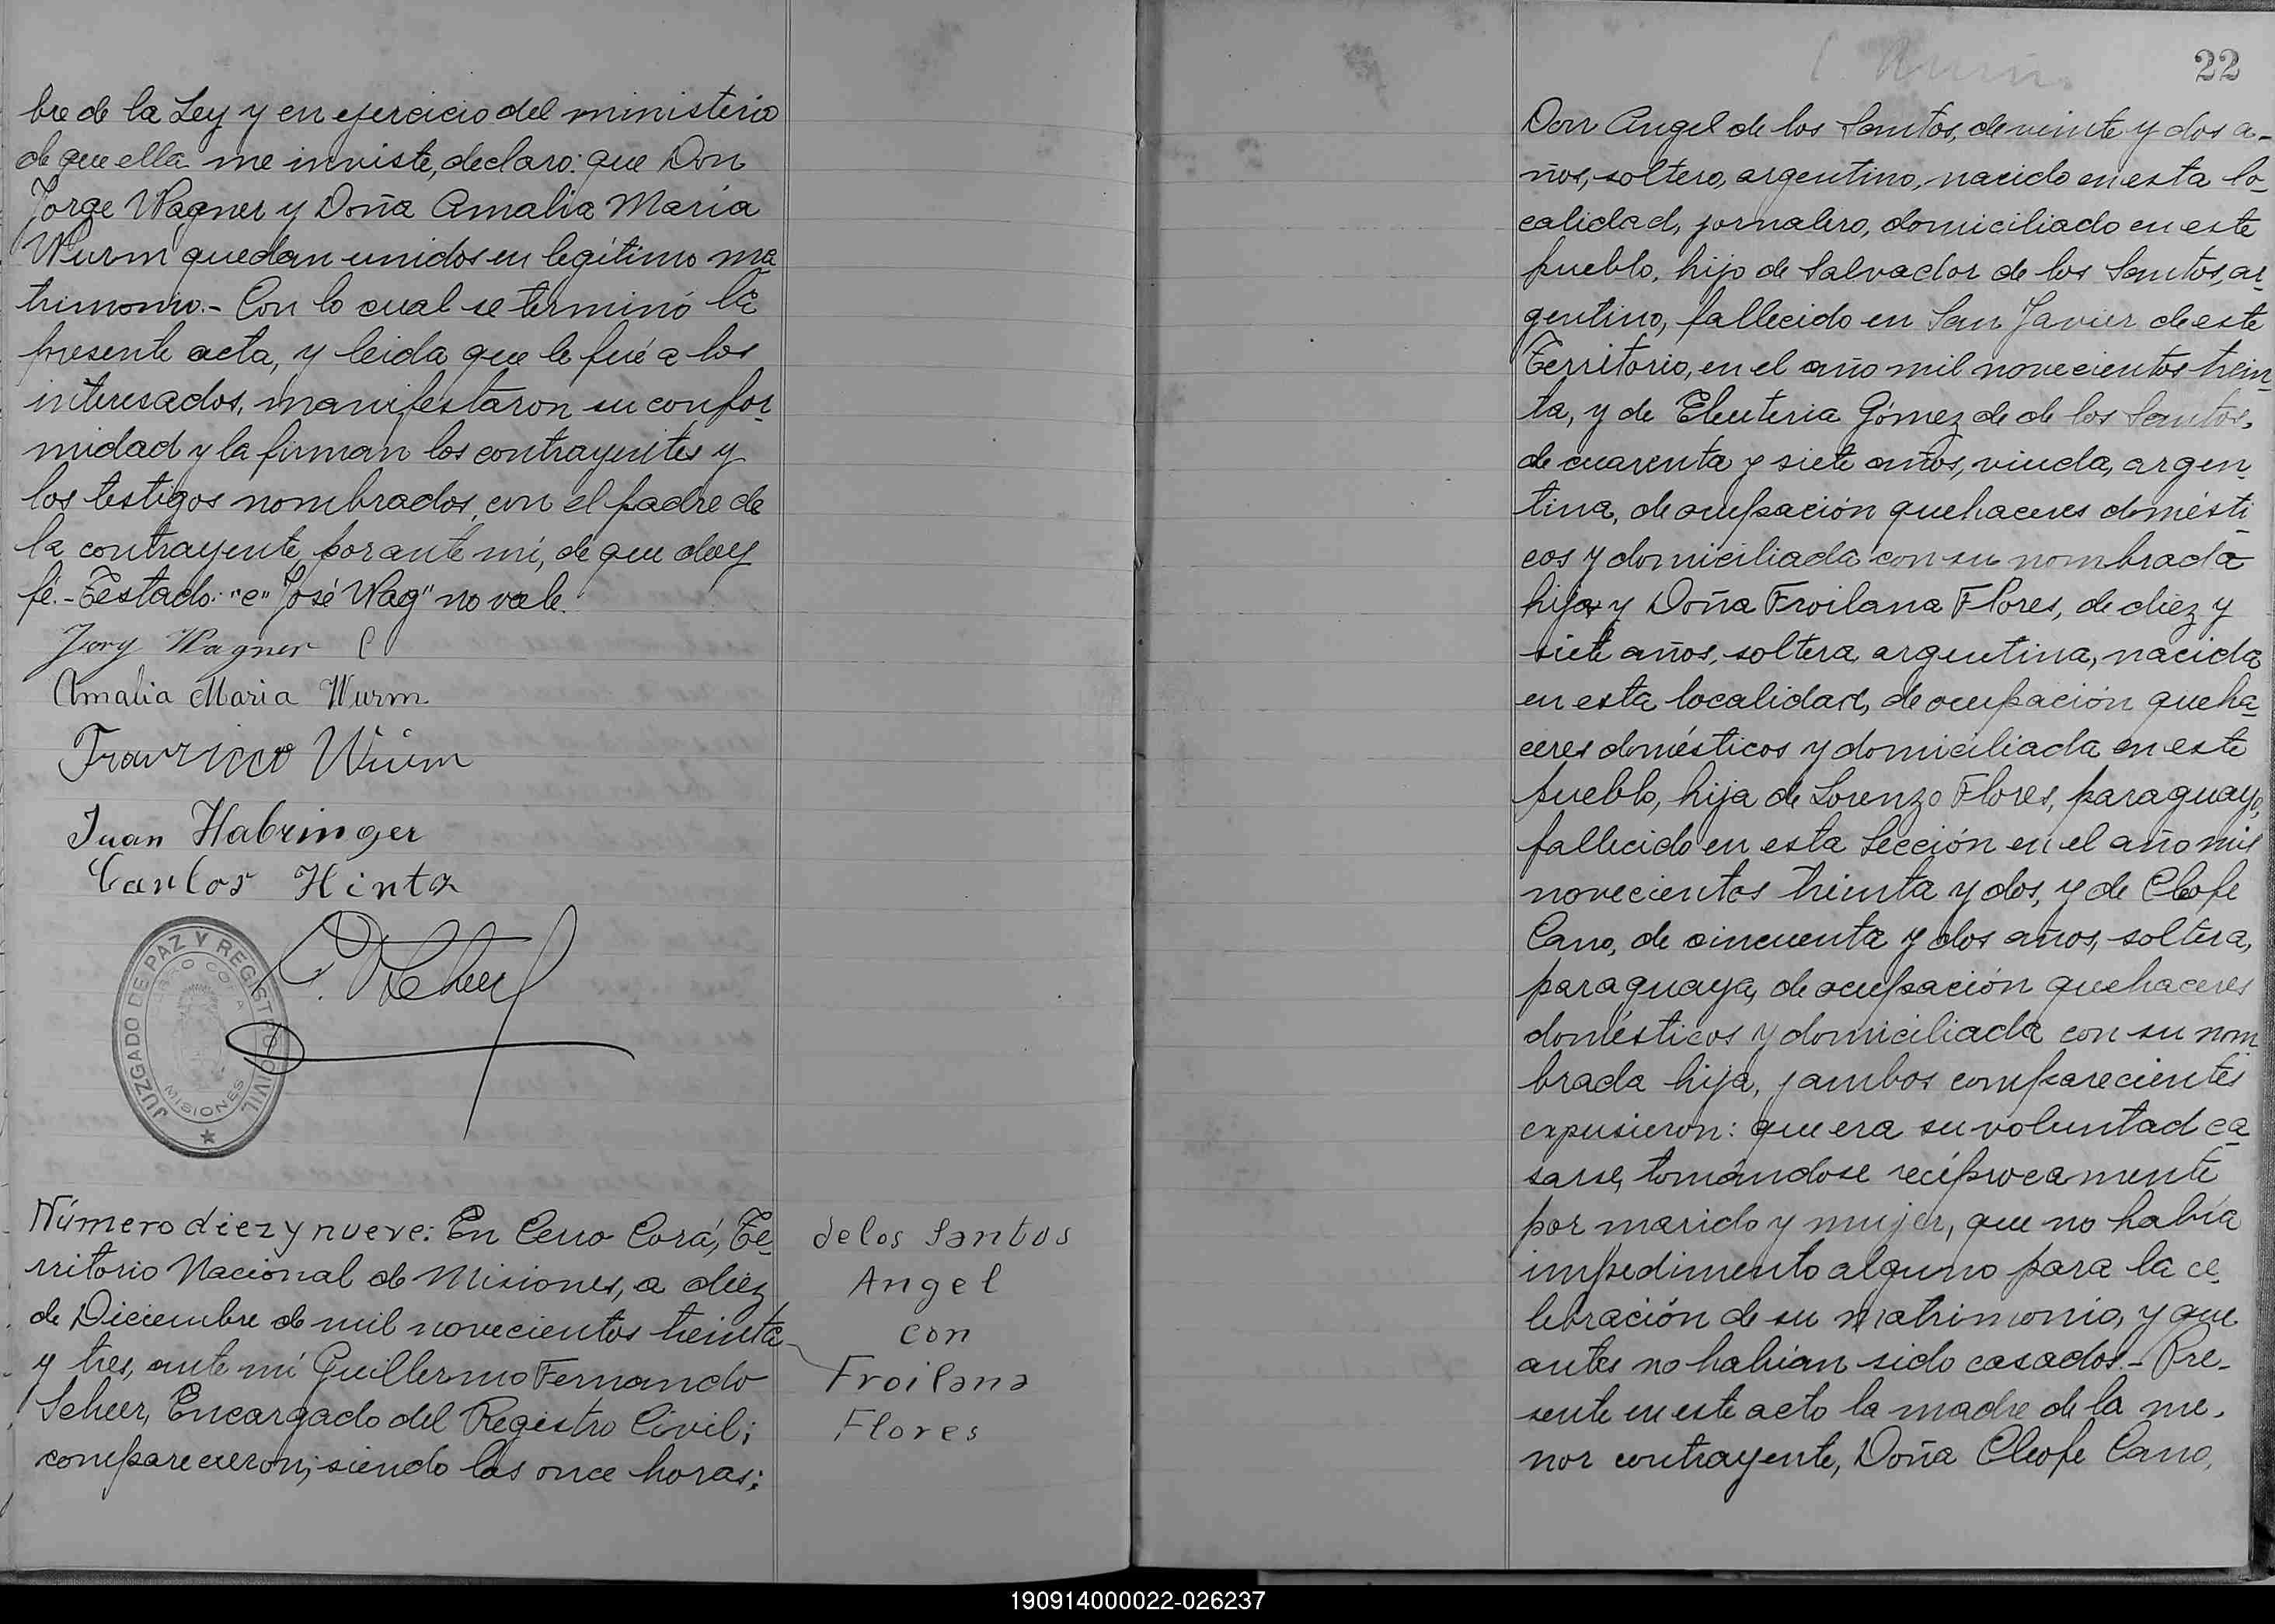 bre de la Ley y en ejercicio del ministerio
de que ella me inviste, declaro: que Don
Jorge Wagner y Doña Amalia María
Wurm quedan unidos en legítimo ma
trimonio.- Con lo cual se terminó la
presente acta, y leida que le fué a los
interesados, manifestaron su confor-
midad y la firman los contrayentes y
los testigos nombrados, con el padre de
la contrayente, por ante mí, de que doy
fé.- Testado: "e" "José Wag" no vale.
Jorg Wagner
Amalia Maria Wurm
Wurm
Juan Habringer
Carlos Hinta
G. F. Scheer
JUZGADO DE PAZ Y REGISTRO CIVIL
CERRO CORA
MISIONES
Número diez y nueve: En Cerro Corá, Te-
rritorio Nacional de Misiones, a diez
de Diciembre de mil novecientos treinta
y tres, ante mí Guillermo Fernando
Scheer, Encargado del Registro Civil;
comparecieron; siendo las once horas:
de los Santos
Angel
con
Froilana
Flores
22
Don Angel de los Santos, de veinte y dos a-
ños, soltero, argentino, nacido en esta lo-
calidad, jornalero, domiciliado en este
pueblo, hijo de Salvador de los Santos, ar-
gentino, fallecido en San Javier de este
Territorio, en el año mil novecientos trein-
ta, y de Eleuteria Gómez de de los Santos,
de cuarenta y siete años, viuda, argen-
tina, de ocupación quehaceres domésti-
cos y domiciliada con su nombrada
hija y Doña Froilana Flores, de diez y
siete años, soltera, argentina, nacida
en esta localidad, de ocupación queha-
ceres domésticos y domiciliada en este
pueblo, hija de Lorenzo Flores, paraguayo,
fallecido en esta Sección en el año mil
novecientos treinta y dos, y de Cleofe
Cano, de cincuenta y dos años, soltera,
paraguaya, de ocupación quehaceres
domésticos y domiciliada con su nom
brada hija, y ambos comparecientes
expusieron: que era su voluntad ca
sarse, tomándose recíprocamente
por marido y mujer, que no había
impedimento alguno para la ce-
lebración de su matrimonio, y que
antes no habían sido casados.- Pre-
sente en este acto la madre de la me-
nor contrayente, Doña Cleofe Cano,
190914000022-026237